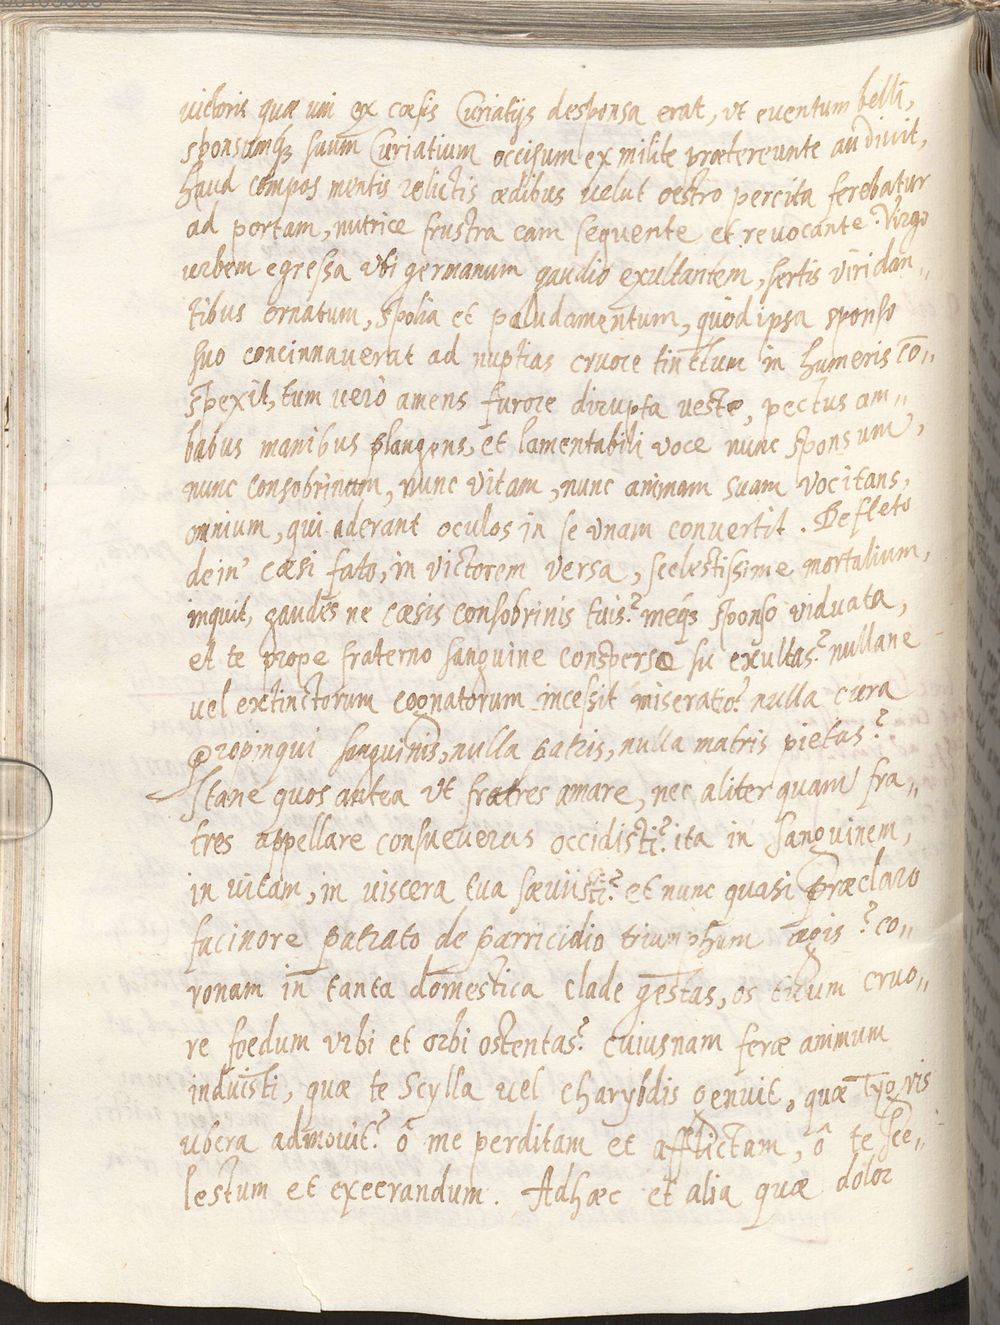 victoris quæ uni ex cæsis Curiatijs desponsa erat, ut eventum belli,
sponsumq; suum Curiatium occisum ex milite prætereunte audivit,
haud compos mentis relictis ædibus velut oestro percita ferebatur
ad portam, nutrice frustra eam sequente et revocante. Virgo
urbem egressa ubi germanum gaudio exultantem, sertis viridan„
tibus ornatum, spolia et paludamentum, quòd ipsa sponso
suo concinnauerat ad nuptias cruore tinctum in humeris cō„
spexit, tum verò amens furore dirupta veste, pectus am„
babus manibus plangens, et lamentabili voce nunc sponsum,
nunc consobrinum, nunc vitam, nunc animam suam vocitans,
omnium, qui aderant oculos in se unam convertit. Defleto
dein' cæsi fato, in victorem versa, scelestissime mortalium,
inquit, gaudes ne cæsis consobrinis tuis? meq; sponso viduata,
et te prope fraterno sanguine conspersæ sic exultas? nullane
vel extinctorum cognatorum incessit miseratio? nulla cura
propinqui sanguinis, nulla patris, nulla matris pietas?
Istane quos antea ut fratres amare, nec aliter quam fra„
tres appellare consueueras occidisti? ita in sanguinem,
in vitam, in viscera tua sæviisti? et nunc quasi præclaro
facinore patrato de parricidio triumphum agis? co„
ronam in tanta domestica clade gestas, os tuum cruo„
re foedum urbi et orbi ostentas? cuiusnam feræ animum
induisti, quæ te Scylla vel Charybdis genuit, quæ Tygris
ubera admovit? ô me perditam et afflictam, ô te sce„
lestum et execrandum. Ad hæc et alia quæ dolor